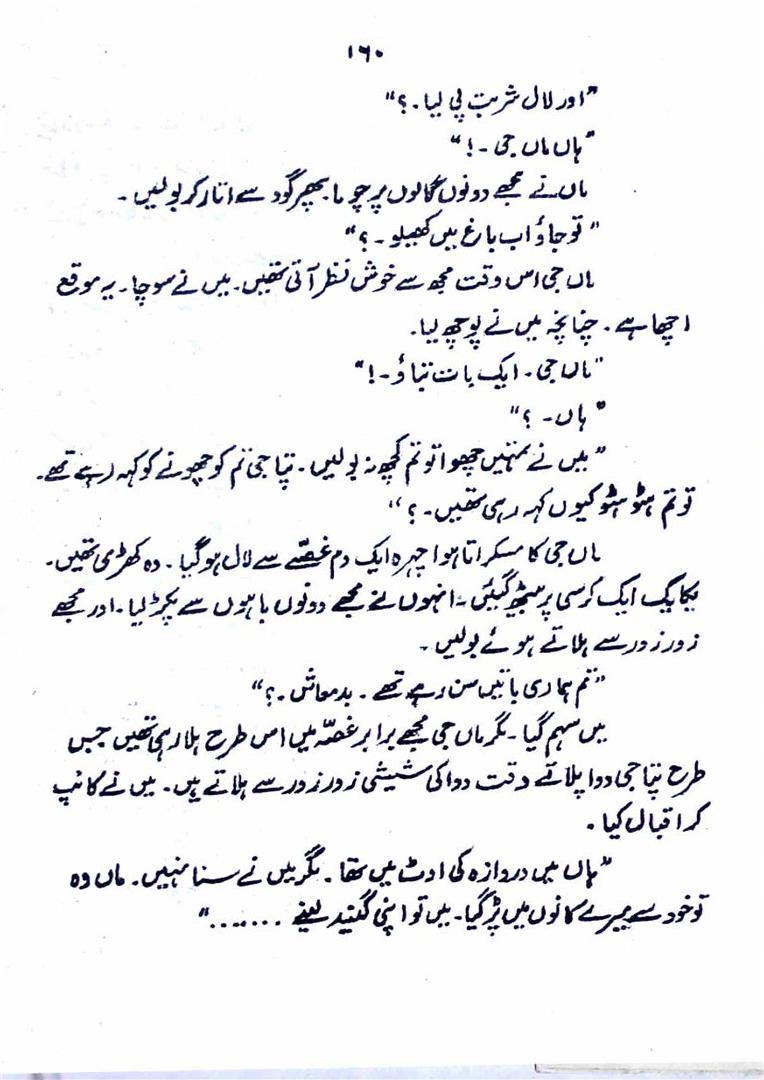 ۱۶۰
"اور لال شربت پی لیا۔؟"
"ہاں ماں جی۔!"
ماں نے مجھے دونوں گالوں پر چوما۔ پھر گود سے اتار کر بولیں۔
"تو جاؤ اب باغ میں کھیلو۔؟"
ماں جی اس وقت مجھ سے خوش نظر آتی تھیں۔ میں نے سوچا۔ یہ موقع
اچھا ہے۔ چنانچہ میں نے پوچھ لیا۔
"ماں جی۔ ایک بات بتاؤ۔!"
"ہاں۔؟"
"میں نے تمہیں چھوا تو تم کچھ نہ بولیں۔ پتا جی تم کو چھونے کو کہہ رہے تھے۔
تو تم ہٹو ہٹو کیوں کہہ رہی تھیں۔؟"
ماں جی کا مسکراتا ہوا چہرہ ایک دم غصّے سے لال ہو گیا۔ وہ کھڑی تھیں۔
یکایک ایک کرسی پر بیٹھ گئیں۔ انہوں نے مجھے دونوں باہوں سے پکڑ لیا۔ اور مجھے
زور زور سے ہلاتے ہوئے بولیں۔
"تم ہماری باتیں سن رہے تھے۔ بدمعاش۔؟"
میں سہم گیا۔ مگر ماں جی مجھے برابر غصّہ میں اس طرح ہلا رہی تھیں جس
طرح پتا جی دوا پلاتے وقت دوا کی شیشی زور زور سے ہلاتے ہیں۔ میں نے کانپ
کر اقبال کیا۔
"ہاں میں دروازہ کی اوٹ میں تھا۔ مگر میں نے سنا نہیں۔ ماں وہ
تو خود سے میرے کانوں میں پڑ گیا۔ میں تو اپنی گیند لینے ......."